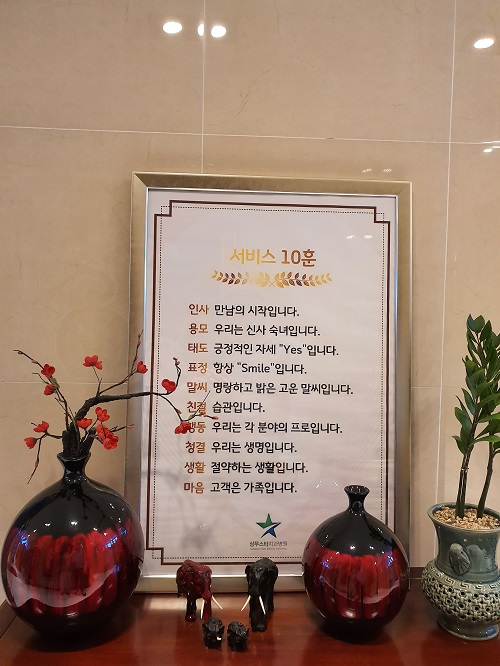 서비스 10훈
인사 만남의 시작입니다.
용모 우리는 신사 숙녀입니다.
태도 긍정적인 자세 "Yes"입니다.
표정 항상 "Smile"입니다.
말씨 명랑하고 밝은 고운 말씨입니다.
친절 습관입니다.
행동 우리는 각 분야의 프로입니다.
청결 우리는 생명입니다.
생활 절약하는 생활입니다.
마음 고객은 가족입니다.
상무스타치과병원